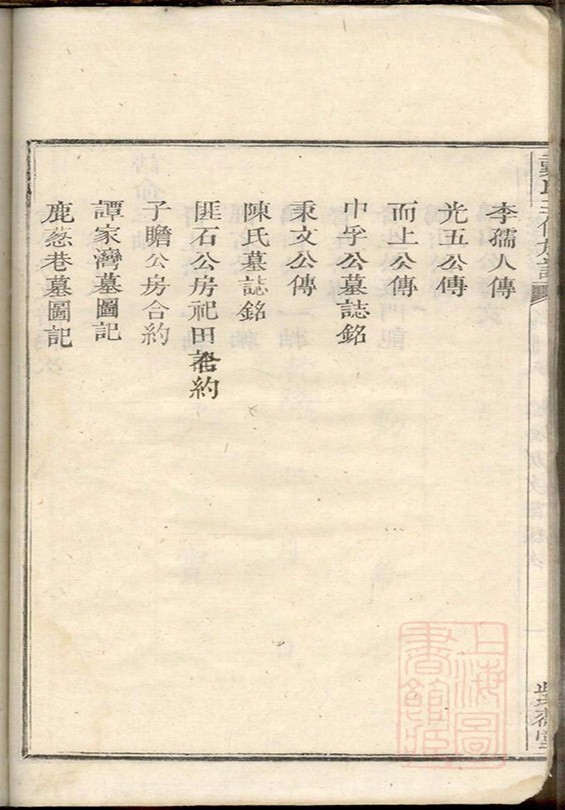 李孺人傳
光五公傳
而上公傳
中孚公墓誌銘
秉文公傳
陳氏墓誌銘
匪石公房祀田合約
子瞻公房合約
譚家灣墓圖記
鹿葱巷墓圖記
上海圖書館藏